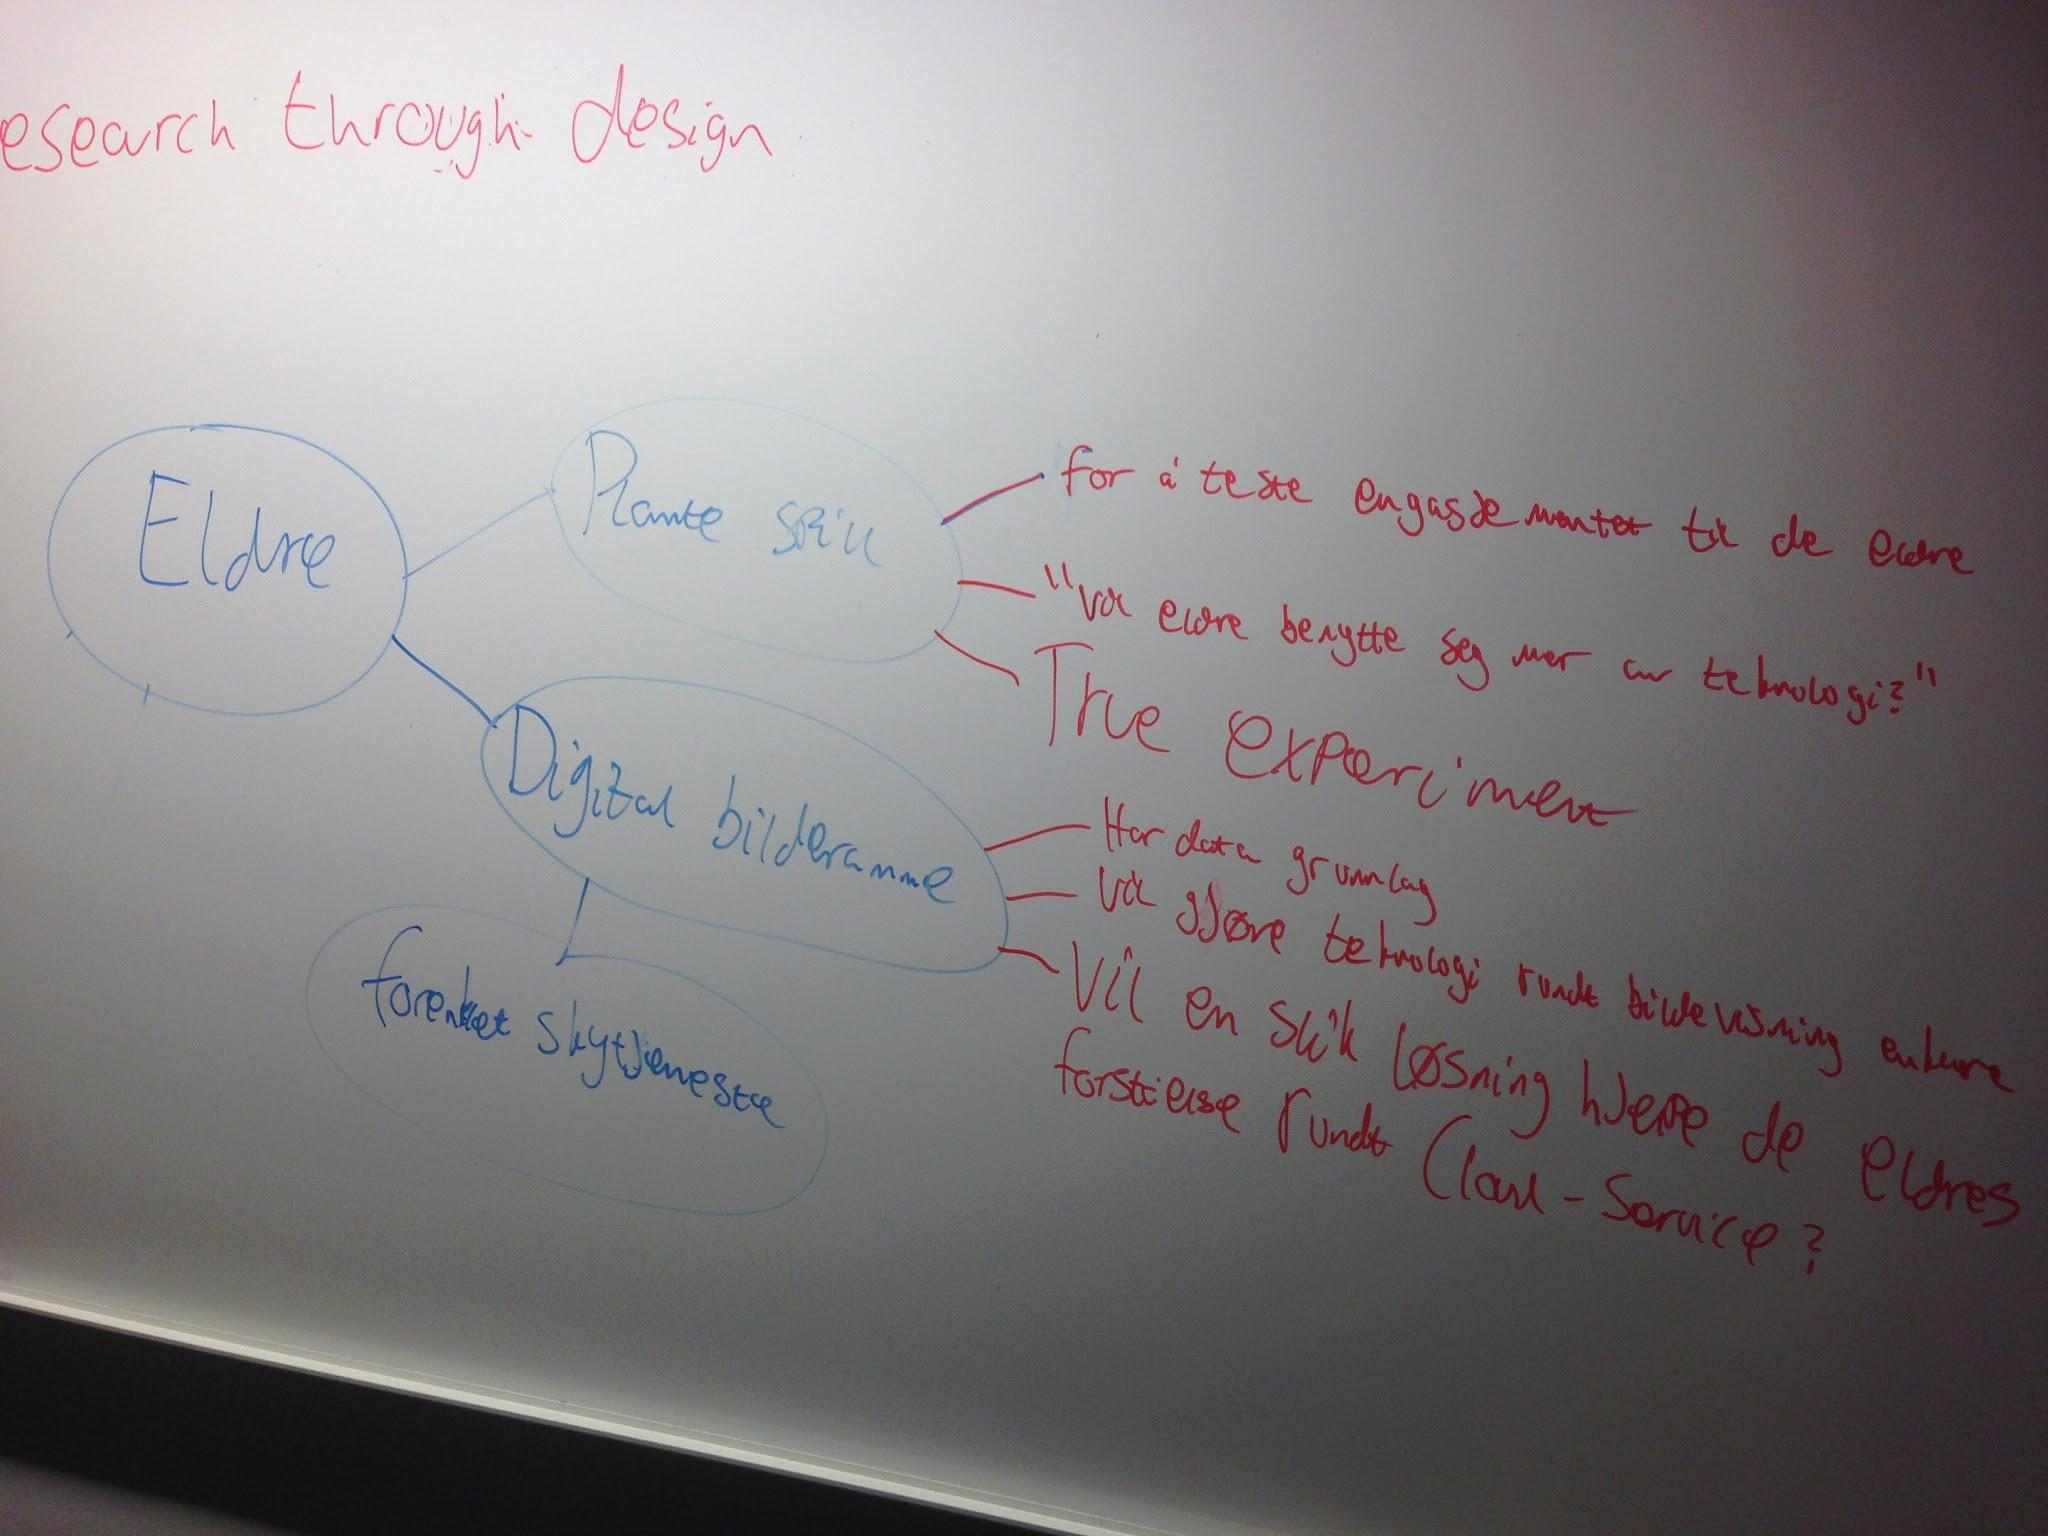 esearch through design
Eldre
Plante spill
for å teste engasjementet til de eldre
"Vil eldre benytte seg mer av teknologi?"
True experiment
Digital bilderamme
Har data grunnlag
Vil gjøre teknologi rundt bildevisning enklere
Vil en slik løsning hjelpe de eldres
forståelse rundt Cloud-Service?
forenklet skytjeneste